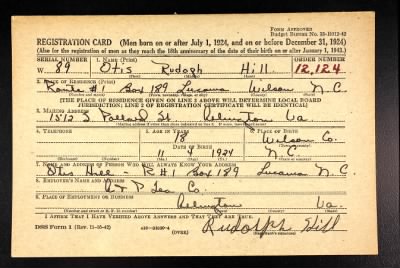 FORM APPROVED
Budget Bureau No. 33-R012-42
REGISTRATION CARD—(Men born on or after July 1, 1924, and on or before December 31, 1924)
(Also for the registration of men as they reach the 18th anniversary of the date of their birth on or after January 1, 1943.)
SERIAL NUMBER 1. NAME (Print) ORDER NUMBER
W 89 Otis Rudolph Hill 12,124
(First) (Middle) (Last)
2. PLACE OF RESIDENCE (Print)
Route #1 Box 189 Lucama Wilson N.C.
[THE PLACE OF RESIDENCE GIVEN ON LINE 2 ABOVE WILL DETERMINE LOCAL BOARD
JURISDICTION; LINE 2 OF REGISTRATION CERTIFICATE WILL BE IDENTICAL]
3. MAILING ADDRESS
1512 S Pollard St Arlington Va.
4. TELEPHONE 5. AGE IN YEARS 6. PLACE OF BIRTH
18 Wilson Co.
DATE OF BIRTH
11 4 1924 N.C.
(Exchange) (Number) (Mo.) (Day) (Yr.) (State or country)
7. NAME AND ADDRESS OF PERSON WHO WILL ALWAYS KNOW YOUR ADDRESS
Otis Hill - R#1 Box 189 Lucama N.C.
8. EMPLOYER'S NAME AND ADDRESS
A & P Tea Co.
9. PLACE OF EMPLOYMENT OR BUSINESS
Arlington Va.
I AFFIRM THAT I HAVE VERIFIED ABOVE ANSWERS AND THAT THEY ARE TRUE.
DSS Form 1 (Rev. 11-16-42) (OVER) Rudolph Hill
(Registrant's signature)